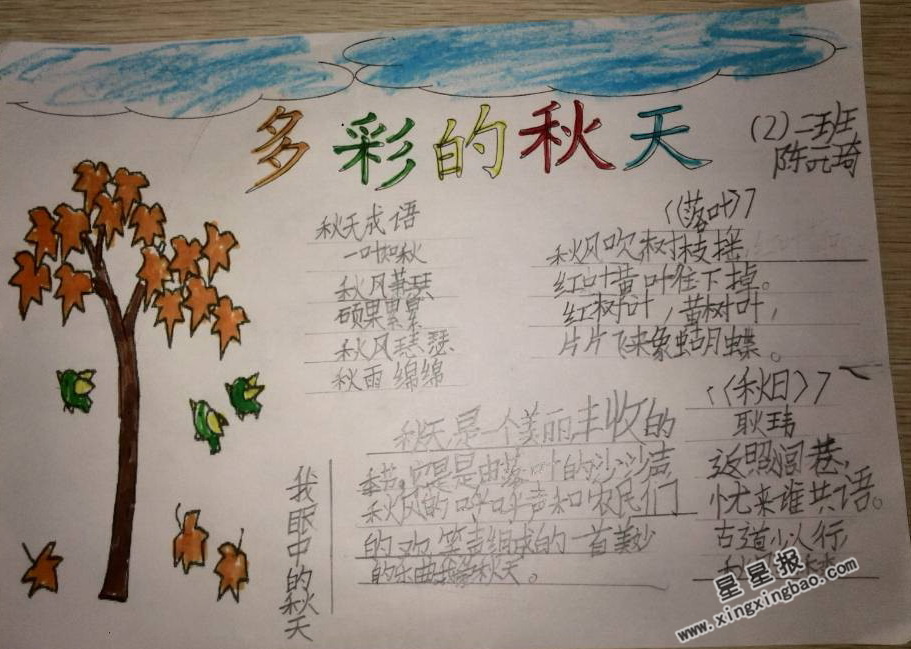 多彩的秋天
(2)二班
陈元琦
秋天成语
一叶知秋
秋风萧瑟
硕果累累
秋风瑟瑟
秋雨绵绵
《落叶》
秋风吹树枝摇,
红叶黄叶往下掉。
红树叶,黄树叶,
片片飞来象蝴蝶。
我眼中的秋天
秋天,是一个美丽丰收的
季节。它是是由落叶的沙沙声
秋风的呼呼声和农民们
的欢笑声组成的一首美妙
的乐曲秋天。
《秋日》
耿玮
返照闾巷,
忧来谁共语。
古道少人行,
秋
星星报
www.xingxingbao.com